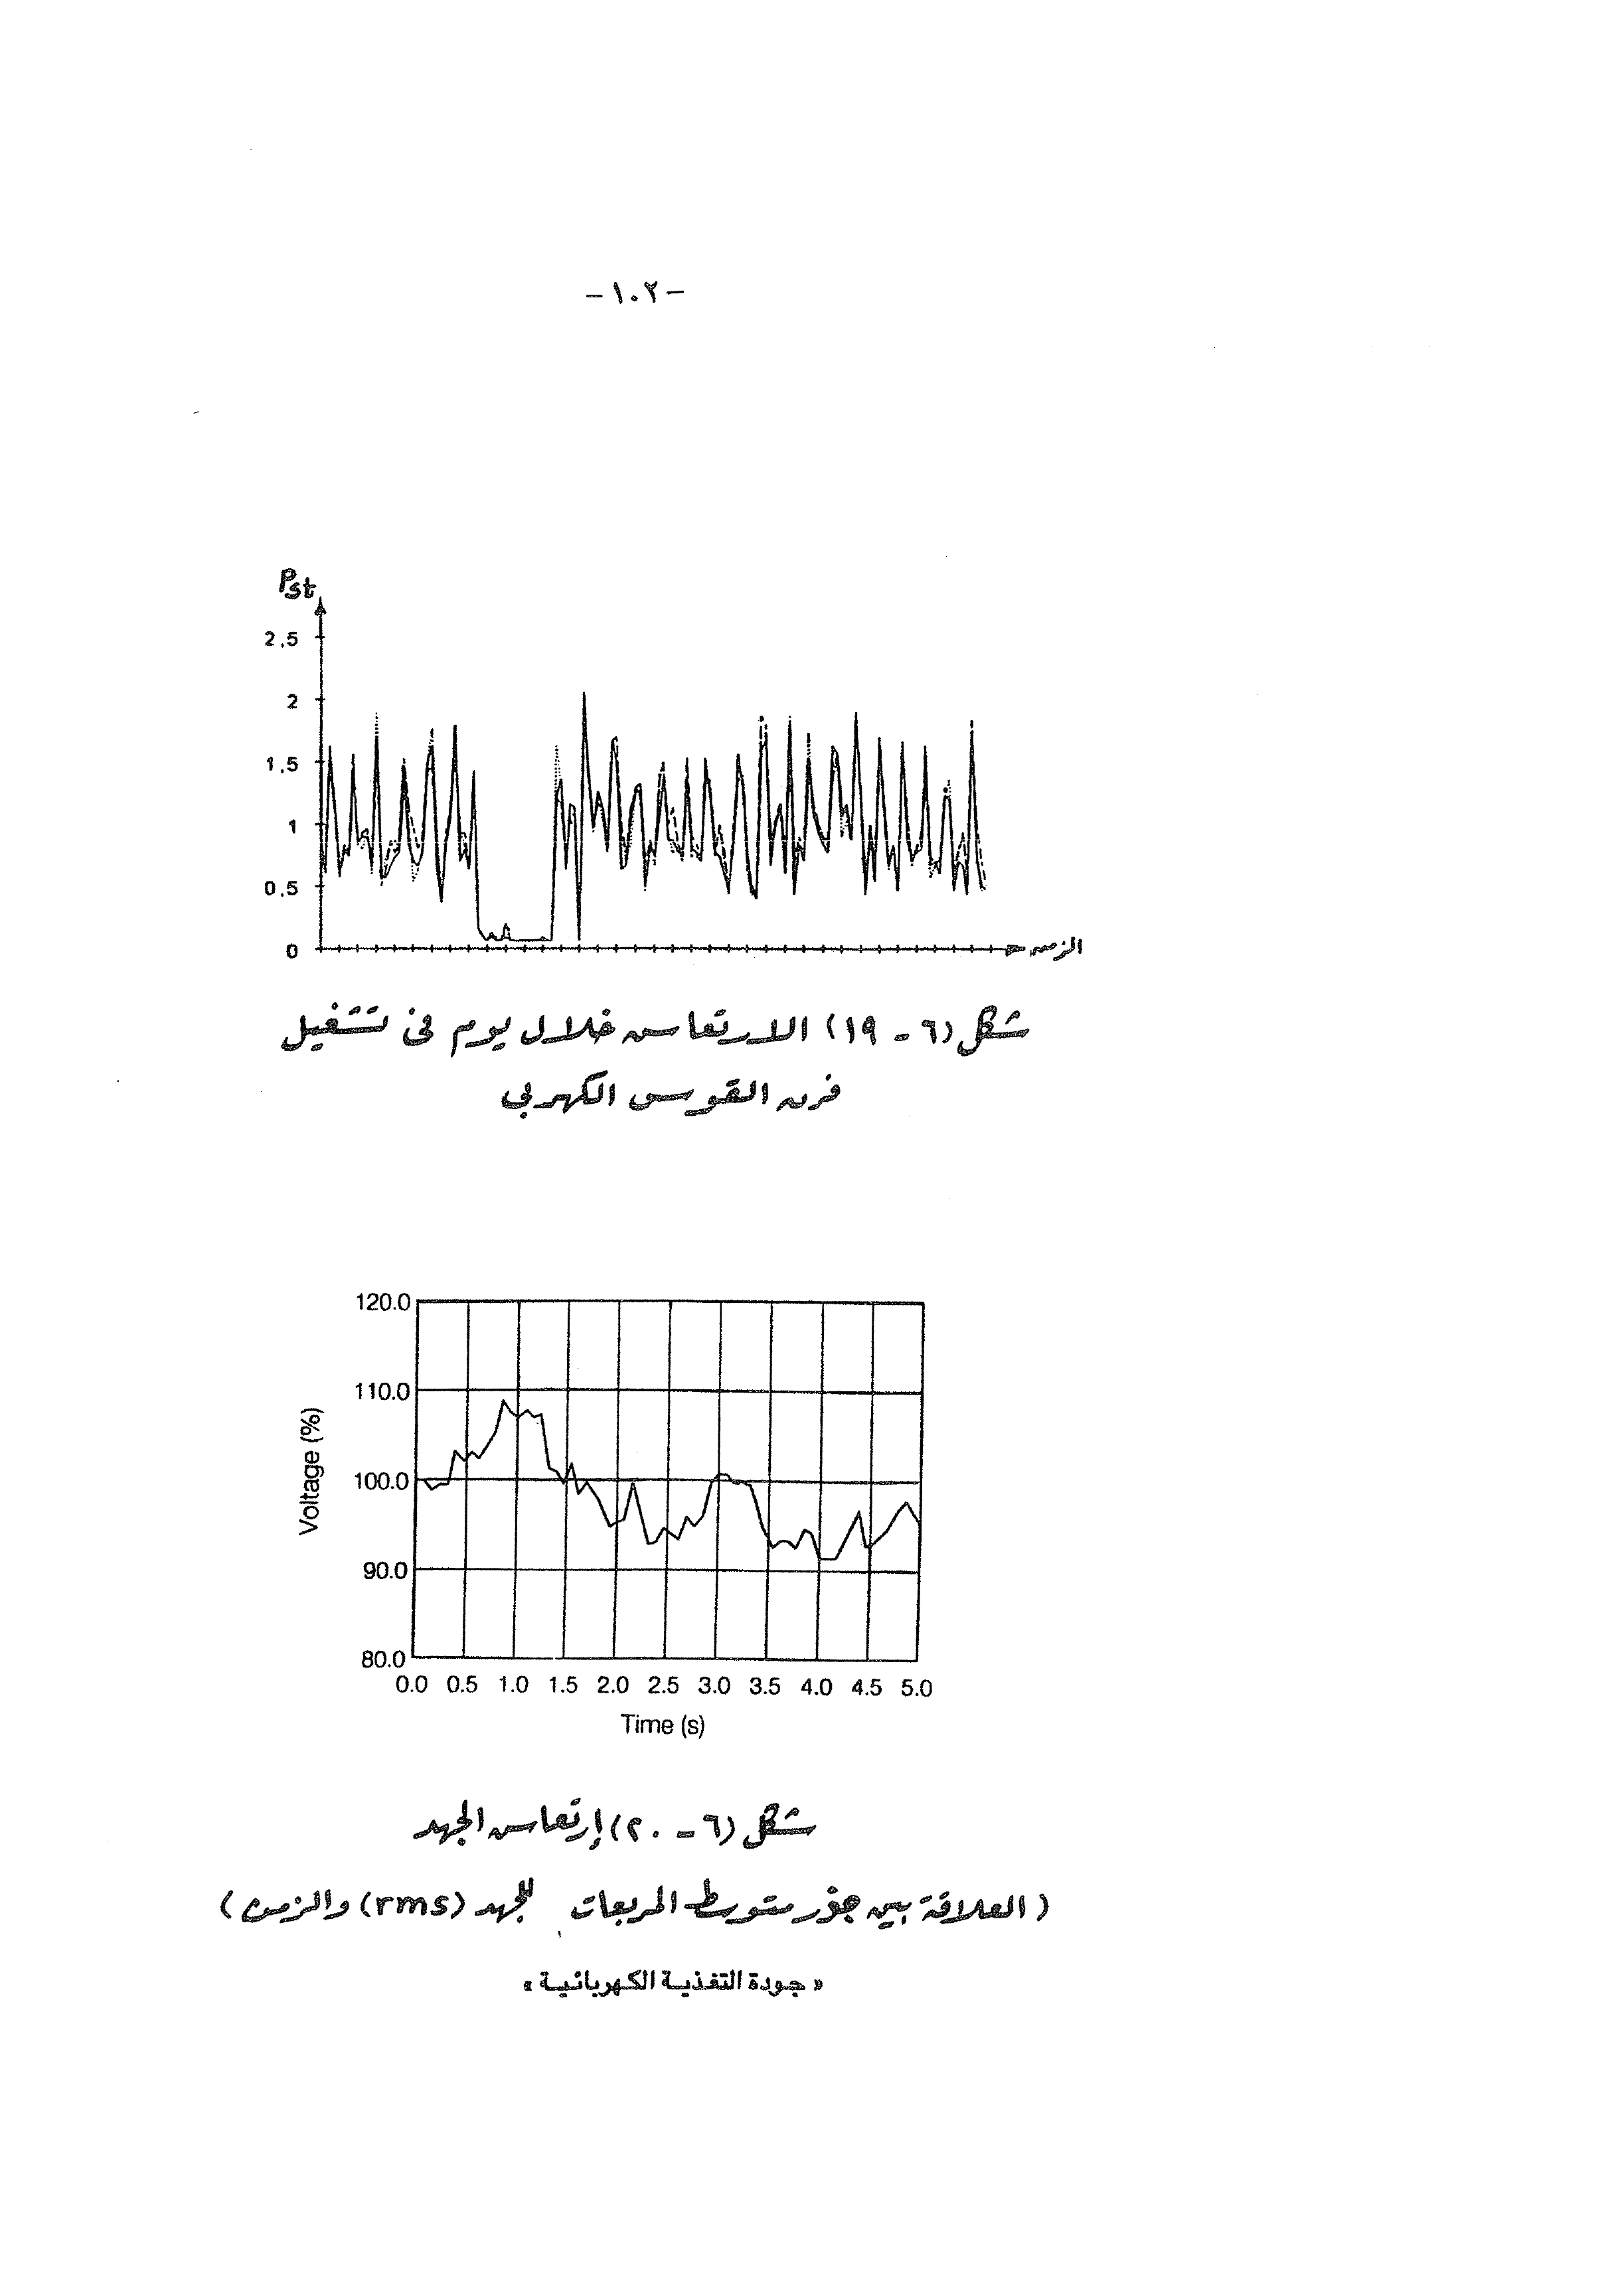 -١٠٢-
Pst
2,5
2
1,5
1
0,5
0
الزمن
شكل (٦ - ١٩) الارتعاس خلال يوم فى تشغيل
فرن القوس الكهربي
120.0
110.0
100.0
90.0
80.0
Voltage (%)
0.0 0.5 1.0 1.5 2.0 2.5 3.0 3.5 4.0 4.5 5.0
Time (s)
شكل (٦ - ٢٠) إرتعاس الجهد
( العلاقة بين جذر متوسط المربعات للجهد (rms) والزمن )
« جودة التغذية الكهربائية »